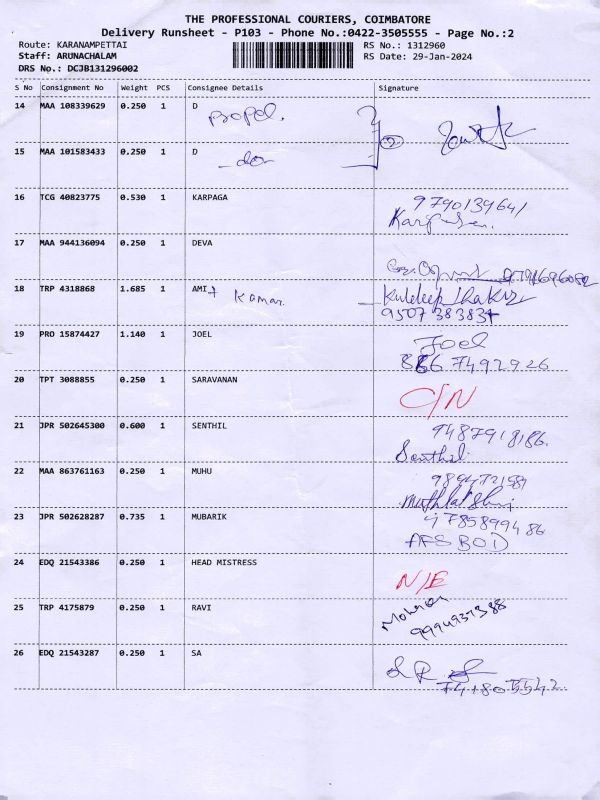 THE PROFESSIONAL COURIERS, COIMBATORE
Delivery Runsheet - P103 - Phone No.:0422-3505555 - Page No.:2
Route: KARANAMPETTAI RS No.: 1312960
Staff: ARUNACHALAM RS Date: 29-Jan-2024
DRS No.: DCJB131296002
S No Consignment No Weight PCS Consignee Details Signature
14 MAA 108339629 0.250 1 D
propel.
15 MAA 101583433 0.250 1 D
do
16 TCG 40823775 0.530 1 KARPAGA
9790139641
17 MAA 944136094 0.250 1 DEVA
18 TRP 4318868 1.685 1 AMIt Kumar. Kuldeep Thakur
19 PRO 15874427 1.140 1 JOEL Joel
8867492926
20 TPT 3088855 0.250 1 SARAVANAN
C/N
21 JPR 502645300 0.600 1 SENTHIL
9487918186.
Senthil
22 MAA 863761163 0.250 1 MUHU
23 JPR 502628287 0.735 1 MUBARIK
24 EDQ 21543386 0.250 1 HEAD MISTRESS
N/E
25 TRP 4175879 0.250 1 RAVI
9994937388
26 EDQ 21543287 0.250 1 SA